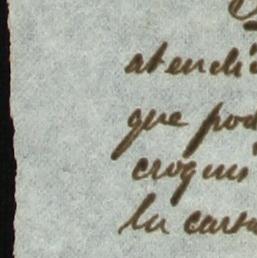 atendi
que pod
croquis
la carta